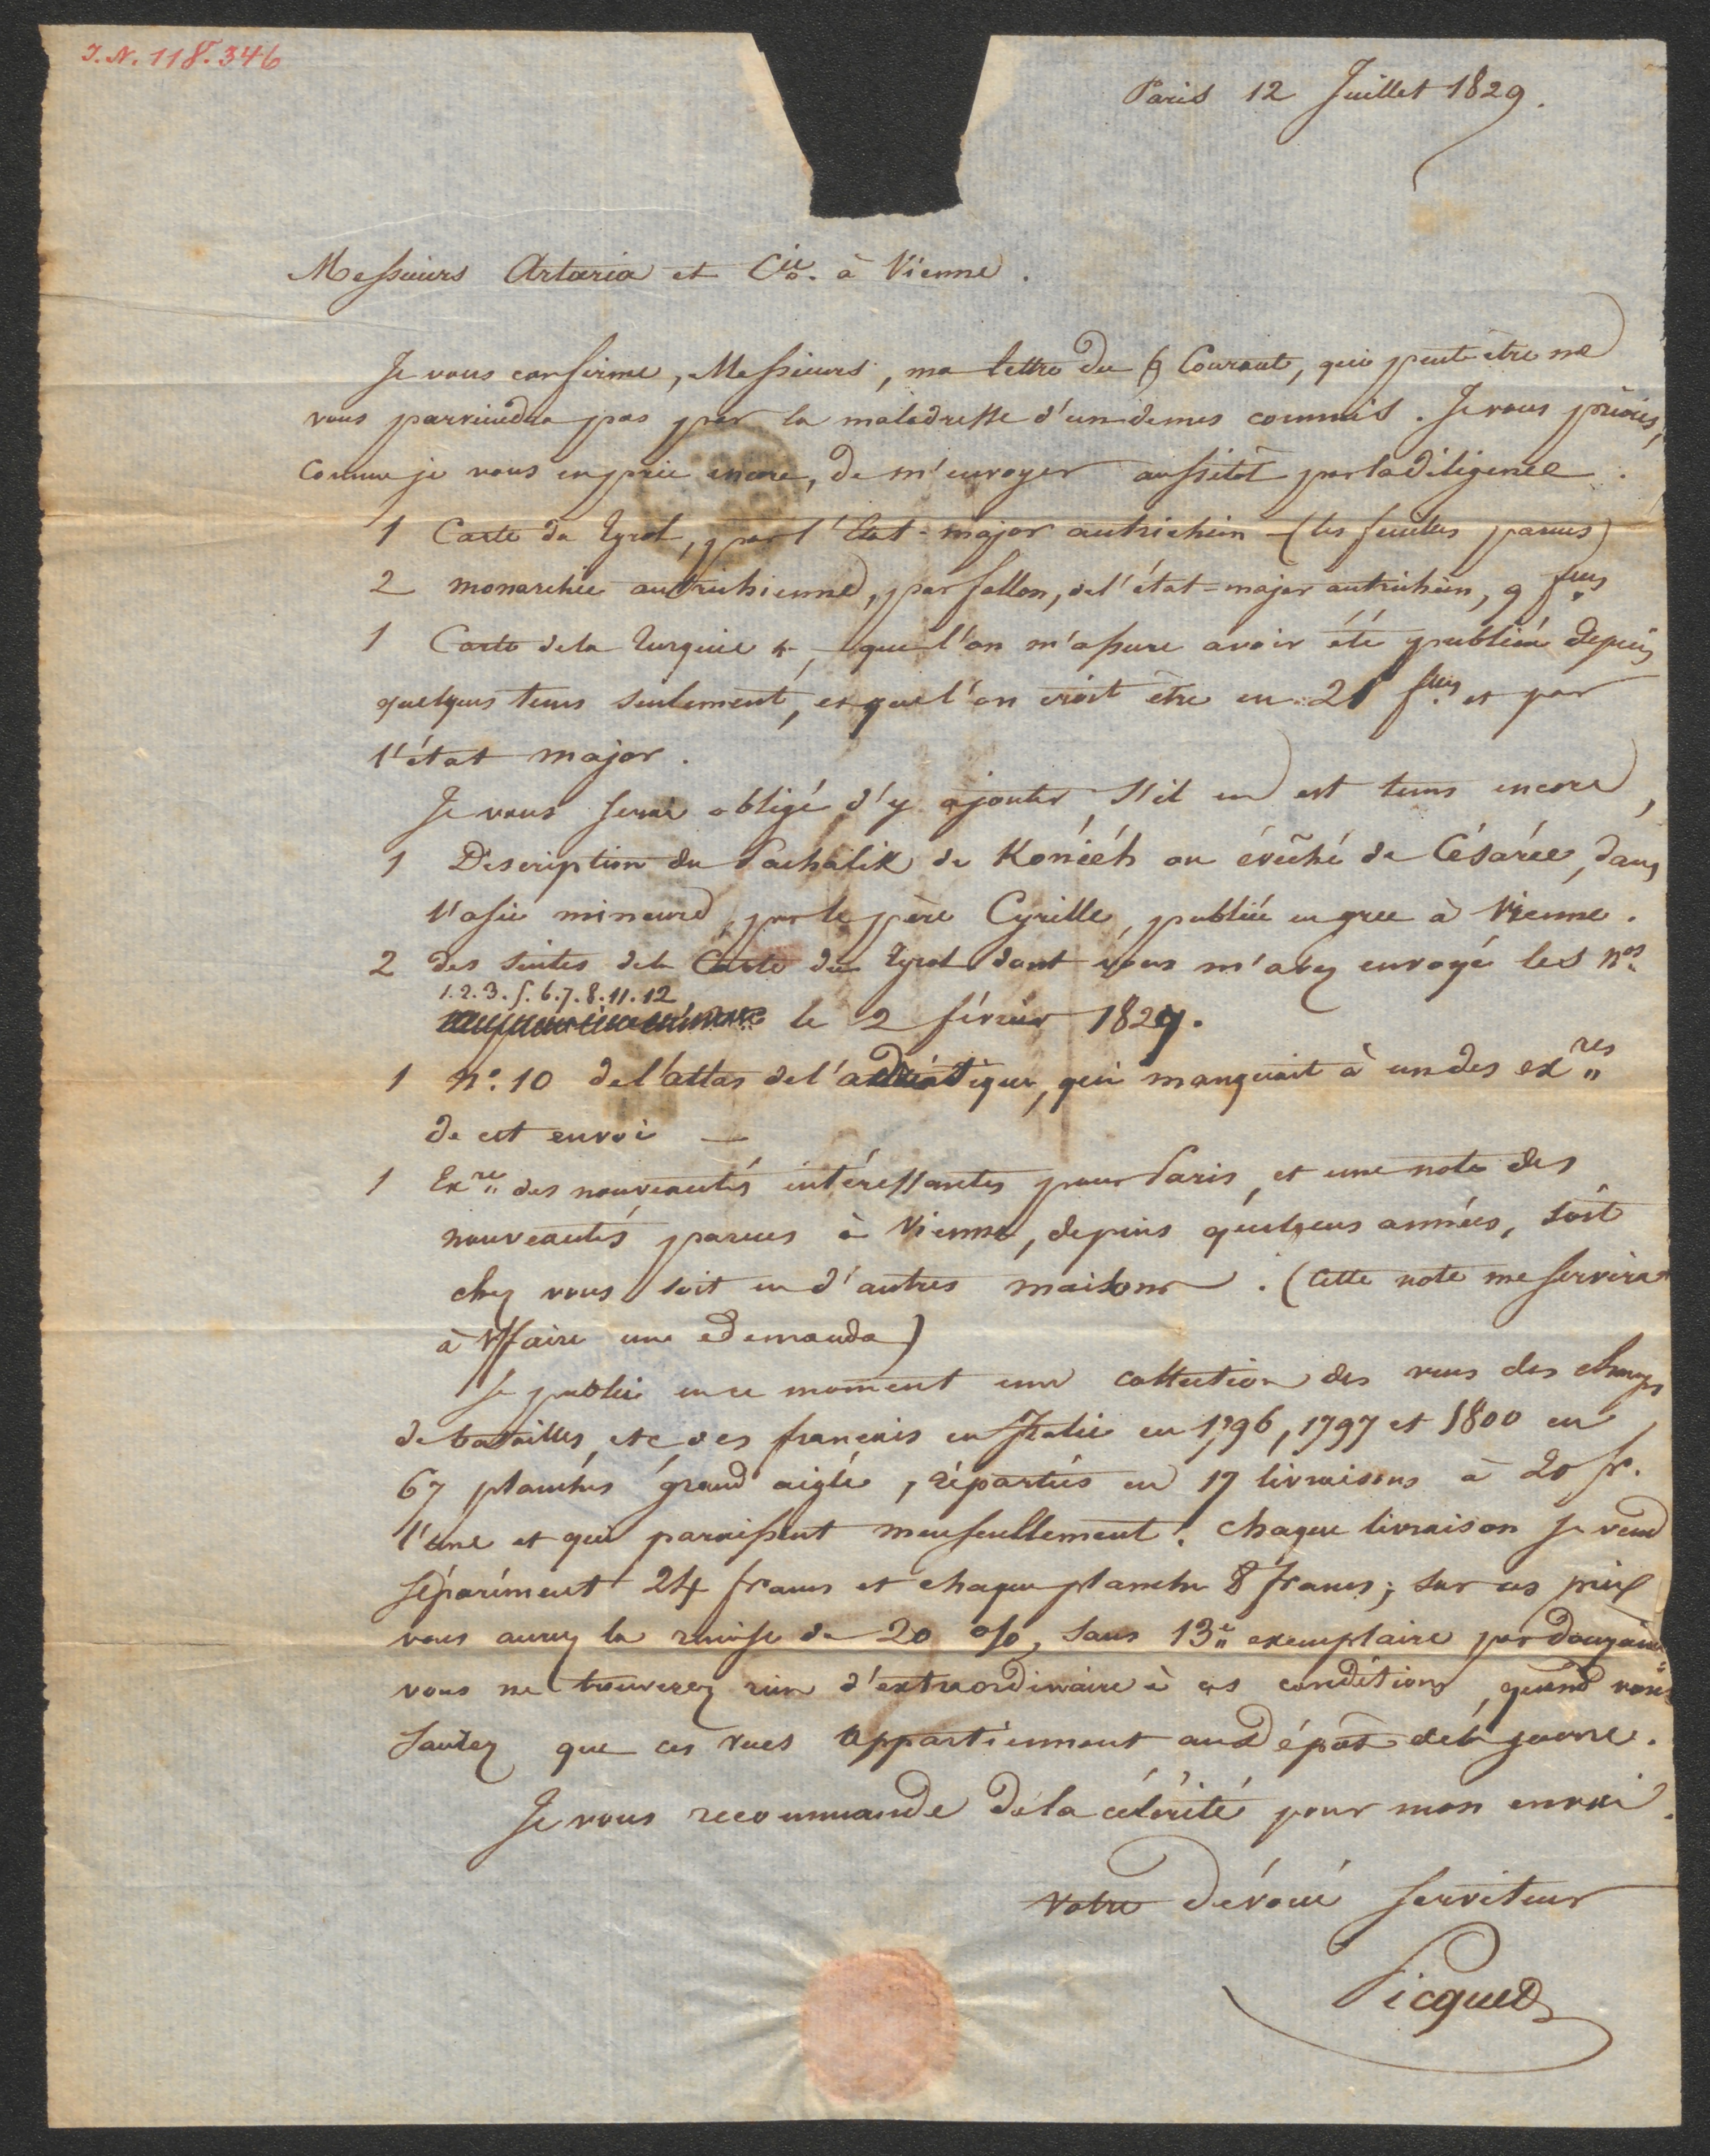 I.N. 118.346
Paris 12 Juillet 1829.
Messieurs Artaria et Cie. à Vienne.
Je vous confirme, Messieurs, ma lettre du Courant, qui peut-être ne
vous parviendra pas par la maladresse d'un de mes commis. Je vous priais,
comme je vous en prie encore, de m'envoyer aussitôt par la diligence.
1 Carte du Tyrol, par l'Etat-major autrichien (les feuilles parues)
2 monarchie autrichienne, par fallon, de l'état-major autrichien, 9 flles
1 Carte de la Turquie &, que l'on m'assure avoir été publiée depuis
quelques tems seulement, et que l'on croit être en 21 flles et par
l'état major.
Je vous serai obligé d'y ajouter, s'il en est tems encore,
1 Description du Pachalik de Koniéh ou évêché de Césarée, dans
l'asie mineure, par le père Cyrille, publiée en grec à Vienne.
2 des suites de la Carte du Tyrol dont vous m'avez envoyé les nos
1.2.3.5.6.7.8.11.12
le 2 février 1829.
1 no. 10 de l'atlas de l'adriatique, qui manquait à un des exres
de cet envoi —
1 Exre des nouveautés intéressantes pour Paris, et une note des
nouveautés parues à Vienne, depuis quelques années, soit
chez vous soit en d'autres maisons. (Cette note me servira
à faire une demande)
Je publie en ce moment une collection des vues des champs
de batailles, etc des français en Italie en 1796, 1797 et 1800 en
67 planches grand aigle, réparties en 17 livraisons à 20 fr.
l'une et qui paraissent mensuellement. Chaque livraison se vend
séparément 24 francs et chaque planche 8 francs; sur ces prix
vous aurez la remise de 20 %, sans 13e exemplaire par douzaine
vous ne trouverez rien d'extraordinaire à ces conditions, quand vous
saurez que ces vues appartiennent au dépôt de la guerre.
Je vous recommande de la célérité pour mon envoi.
Votre dévoué serviteur
Picquet